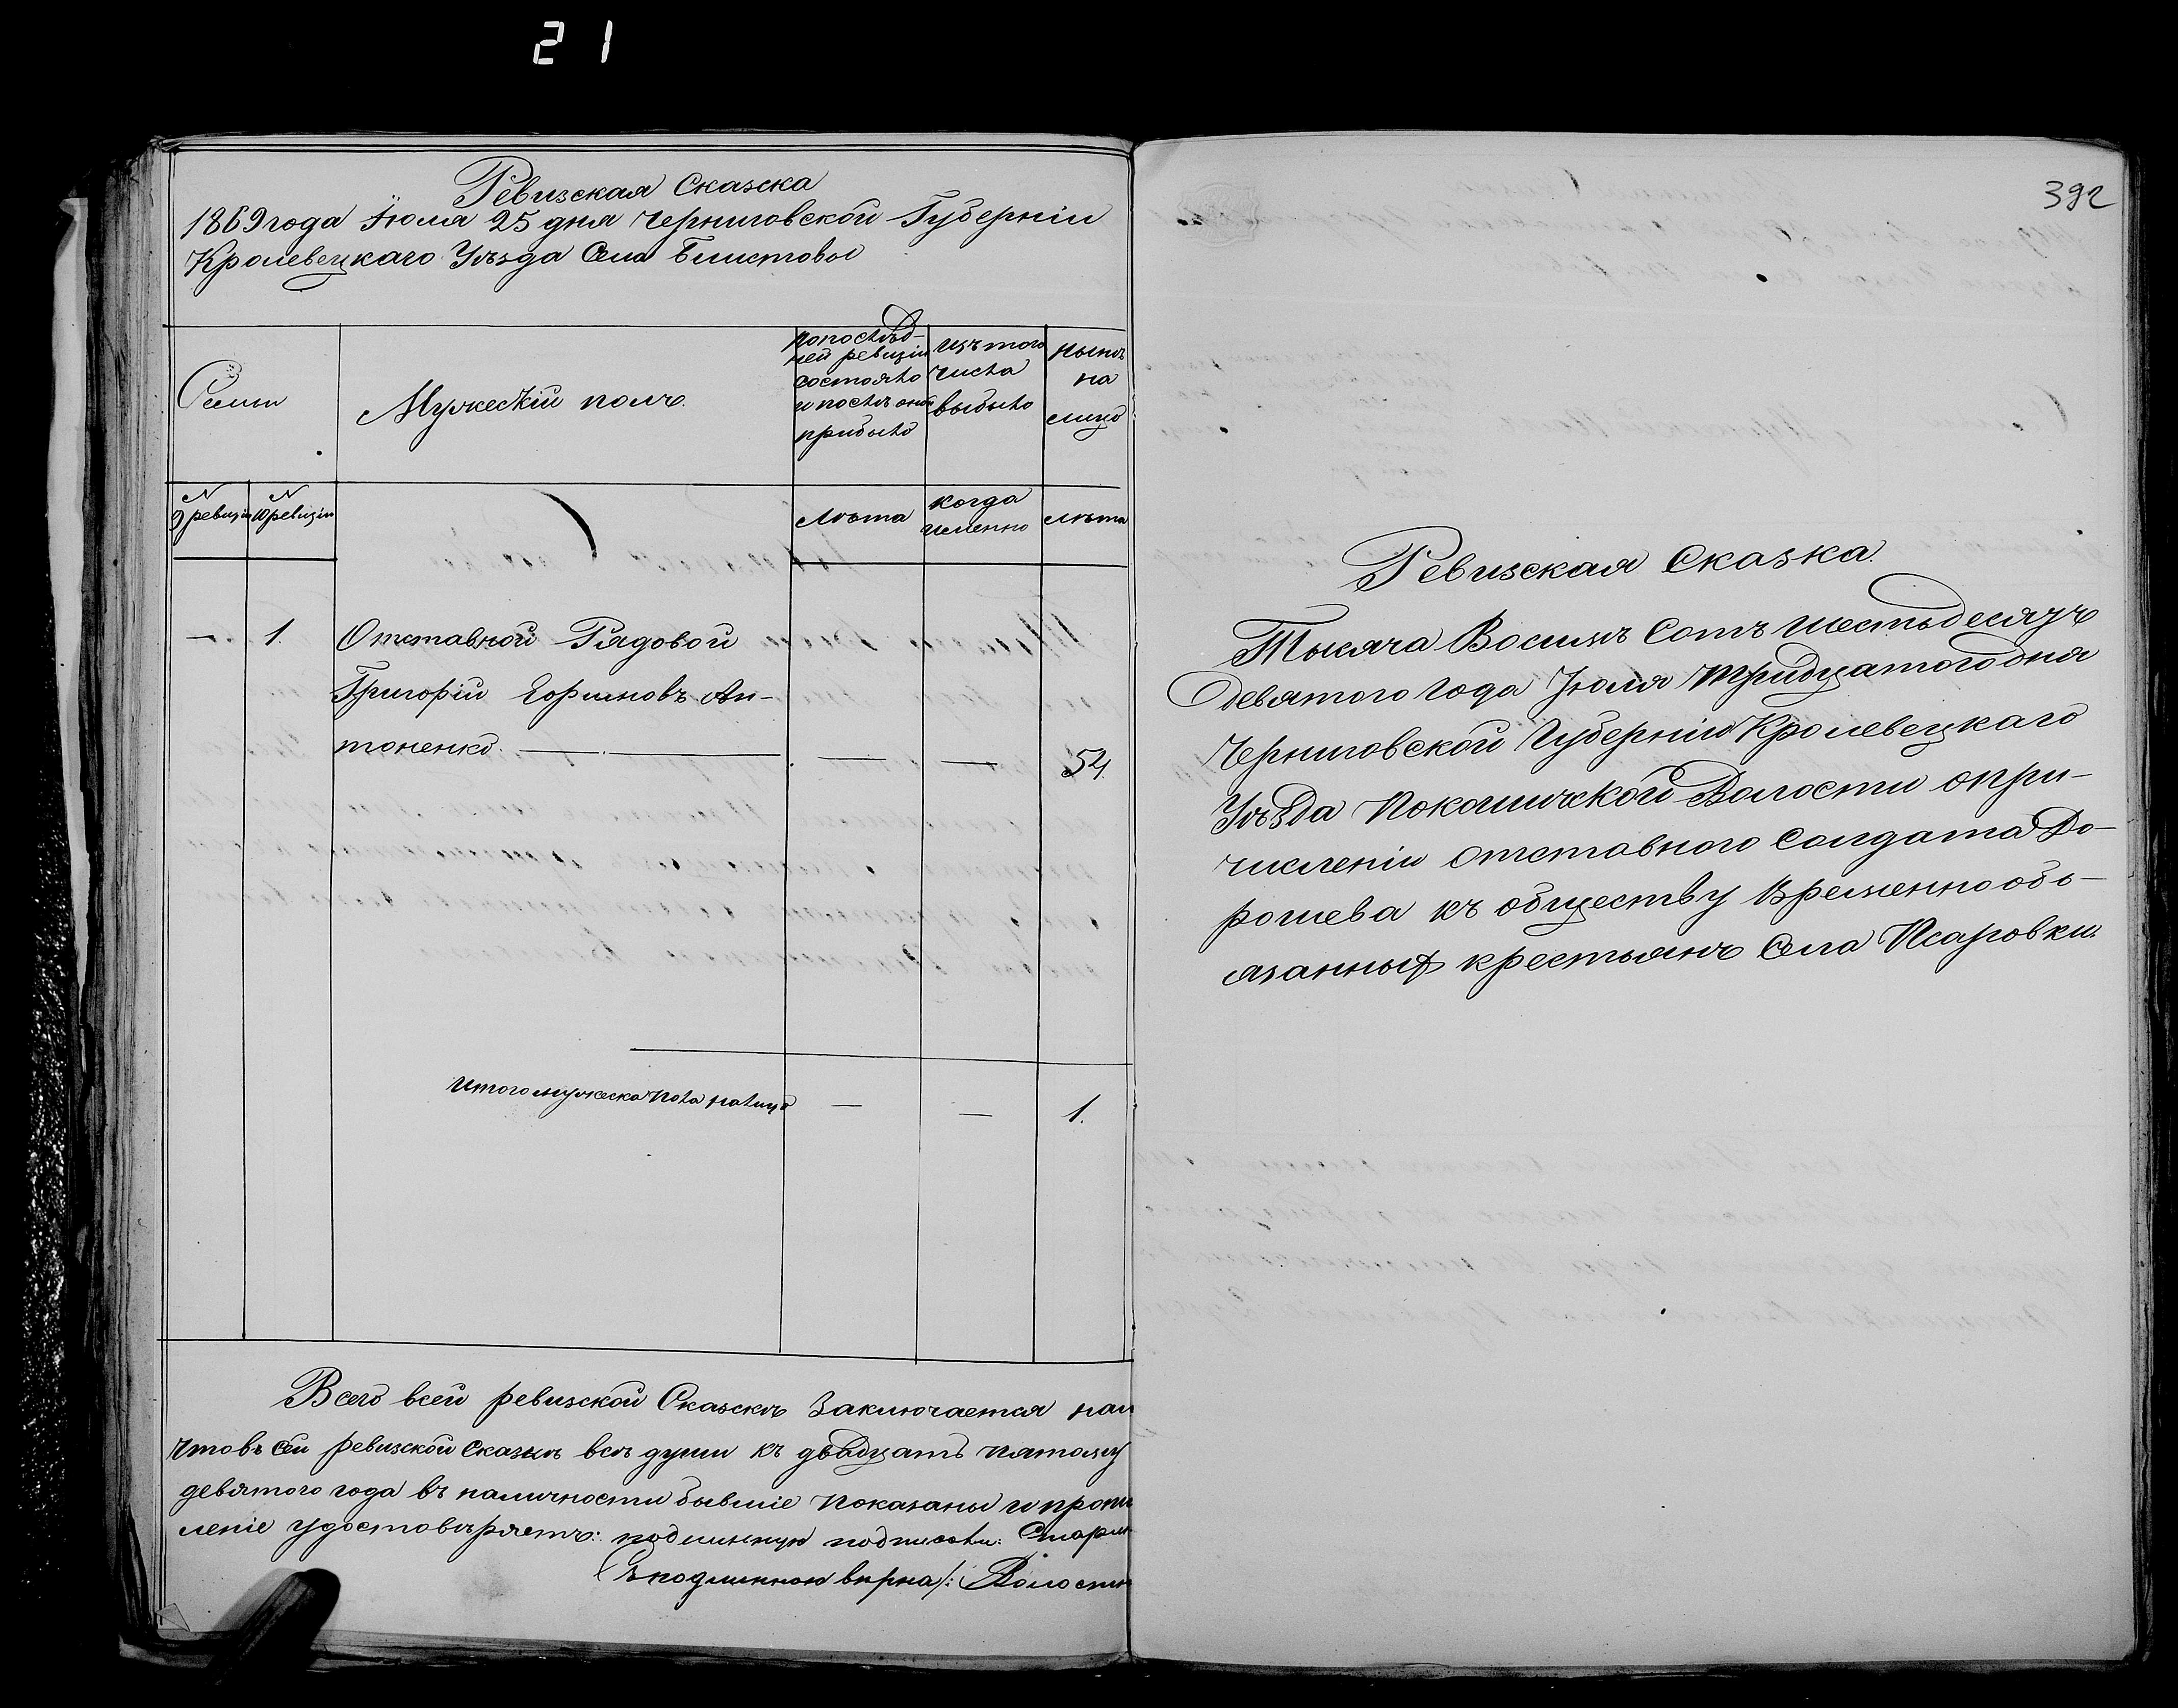 21
Ревизская Сказска
1869 года Іюля 25 дня Черниговской Губерніи
Кролевецкаго Уѣзда Села Блистовы
Семьи
Мужескій полъ.
по послѣд-
ней ревизіи
состояло
и послѣ оной
прибыло
изъ того
числа
выбыло
нынѣ
на
лицо
N
9 ревизіи
N
10 ревизіи
лѣта
когда
именно
лѣта
— 1. Отставной Рядовой
Григорій Горимновъ Ан-
тоненко. — — — 54.
Итого мужеска пола налицо — — 1.
Всего всей ревизской Сказскѣ Заключается нал
Что въ сей ревизской сказкѣ всѣ души къ двадцать пятому
девятого года въ наличности бывшіе показаны и проти
леніе удостовѣряетъ: подлинную подписали: Старш
Съ подлинною вѣрна /: Волостн
392
Ревизская Сказка.
Тысяча Восимъ Сотъ шестьдесятъ
девятого года Іюля тридцатого дня
Черниговской Губерніи Кролевецкаго
Уѣзда Покошичской Волости о при-
численіи отставного солдата До-
рошева къ обществу Временно обо-
язанных крестьянъ Села Псаровки.